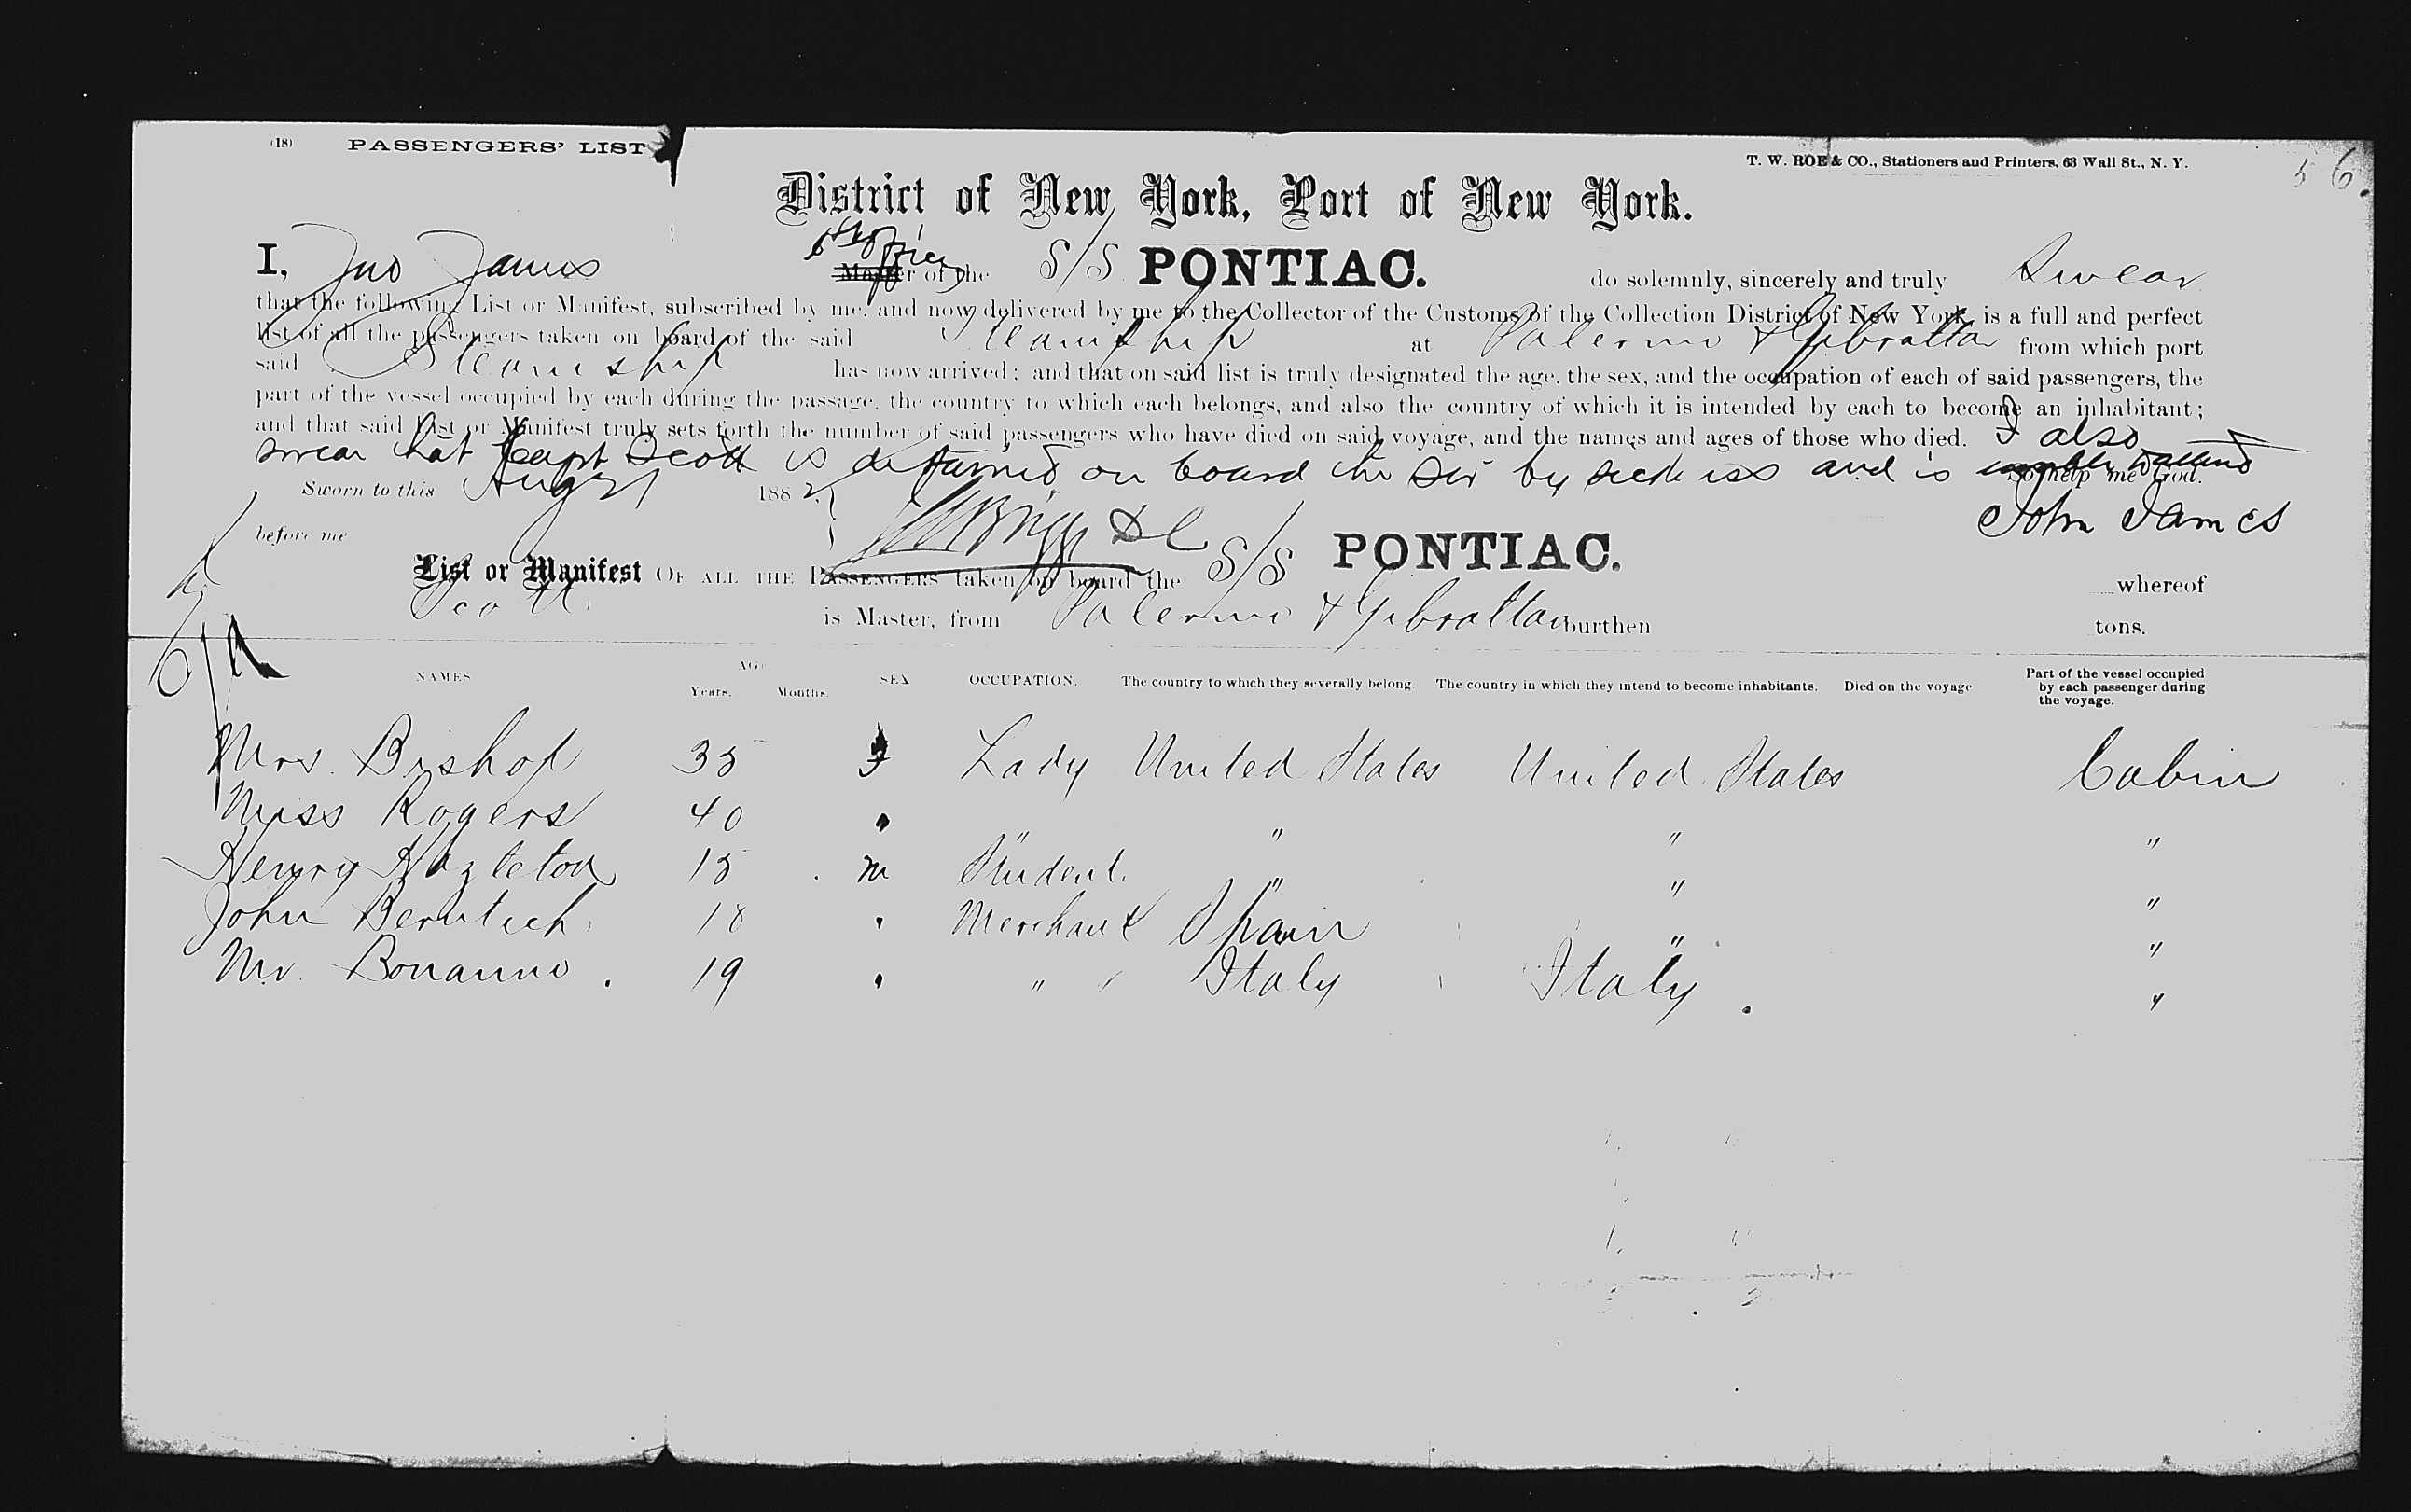 (18) PASSENGERS' LIST
T. W. ROE & CO., Stationers and Printers, 63 Wall St., N. Y.
56.
District of New York, Port of New York.
I, Jno James 1st Officer Master of the S/S PONTIAC. do solemnly, sincerely and truly Swear
that the following List or Manifest, subscribed by me, and now delivered by me to the Collector of the Customs of the Collection District of New York, is a full and perfect
list of all the passengers taken on board of the said Steamship at Palermo & Gibraltar from which port
said Steamship has now arrived; and that on said list is truly designated the age, the sex, and the occupation of each of said passengers, the
part of the vessel occupied by each during the passage, the country to which each belongs, and also the country of which it is intended by each to become an inhabitant;
and that said List or Manifest truly sets forth the number of said passengers who have died on said voyage, and the names and ages of those who died. I also
swear that Capt Scott is detained on board the Str by sickness and is unable to attend
So help me God.
Sworn to this Aug 31 1882
John James
before me
List or Manifest OF ALL THE PASSENGERS taken on board the S/S PONTIAC. whereof
Scott is Master, from Palermo & Gibraltar burthen tons.
NAMES AGE Years. Months. SEX OCCUPATION. The country to which they severally belong. The country in which they intend to become inhabitants. Died on the voyage Part of the vessel occupied by each passenger during the voyage.
Mrs. Bishop 35 f Lady United States United States Cabin
Miss Rogers 40 " " " " "
Henry Hazleton 15 m Student " " "
John Berutich 18 " Merchant Spain " "
Mr. Bonanno. 19 " " Italy Italy. "